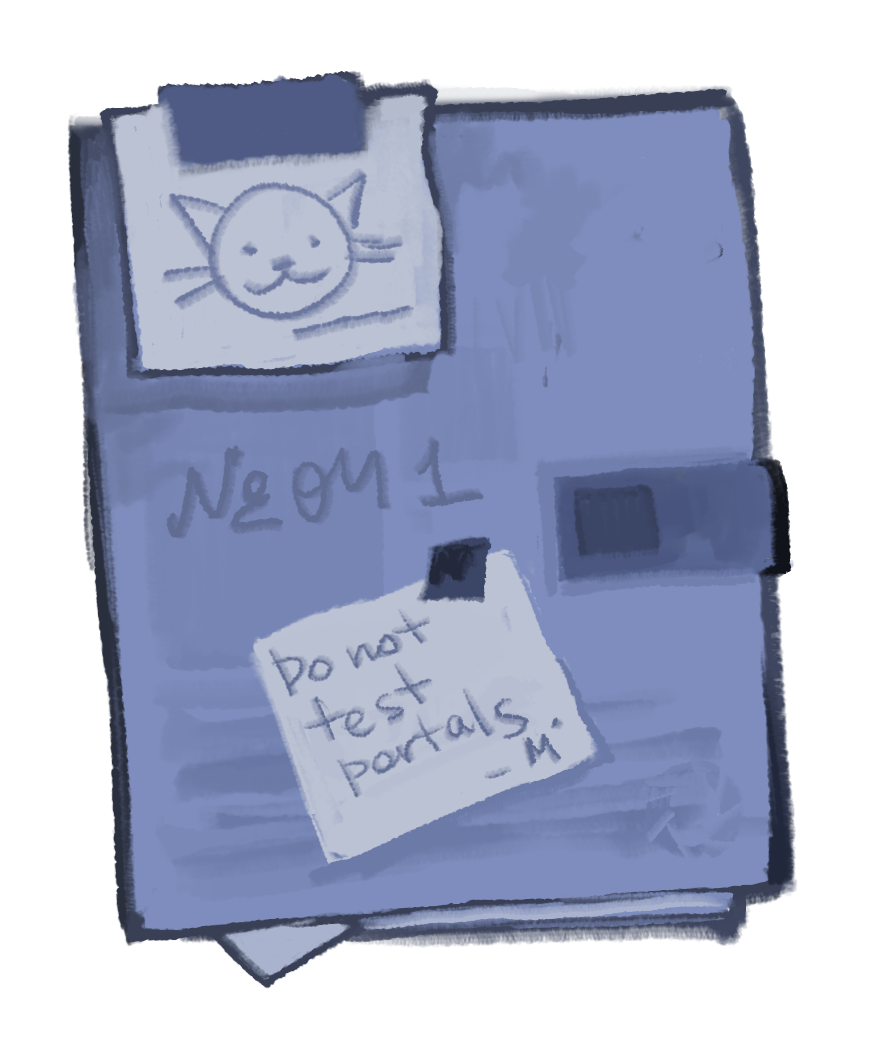 № 04 1
Do not
test
portals.
- M